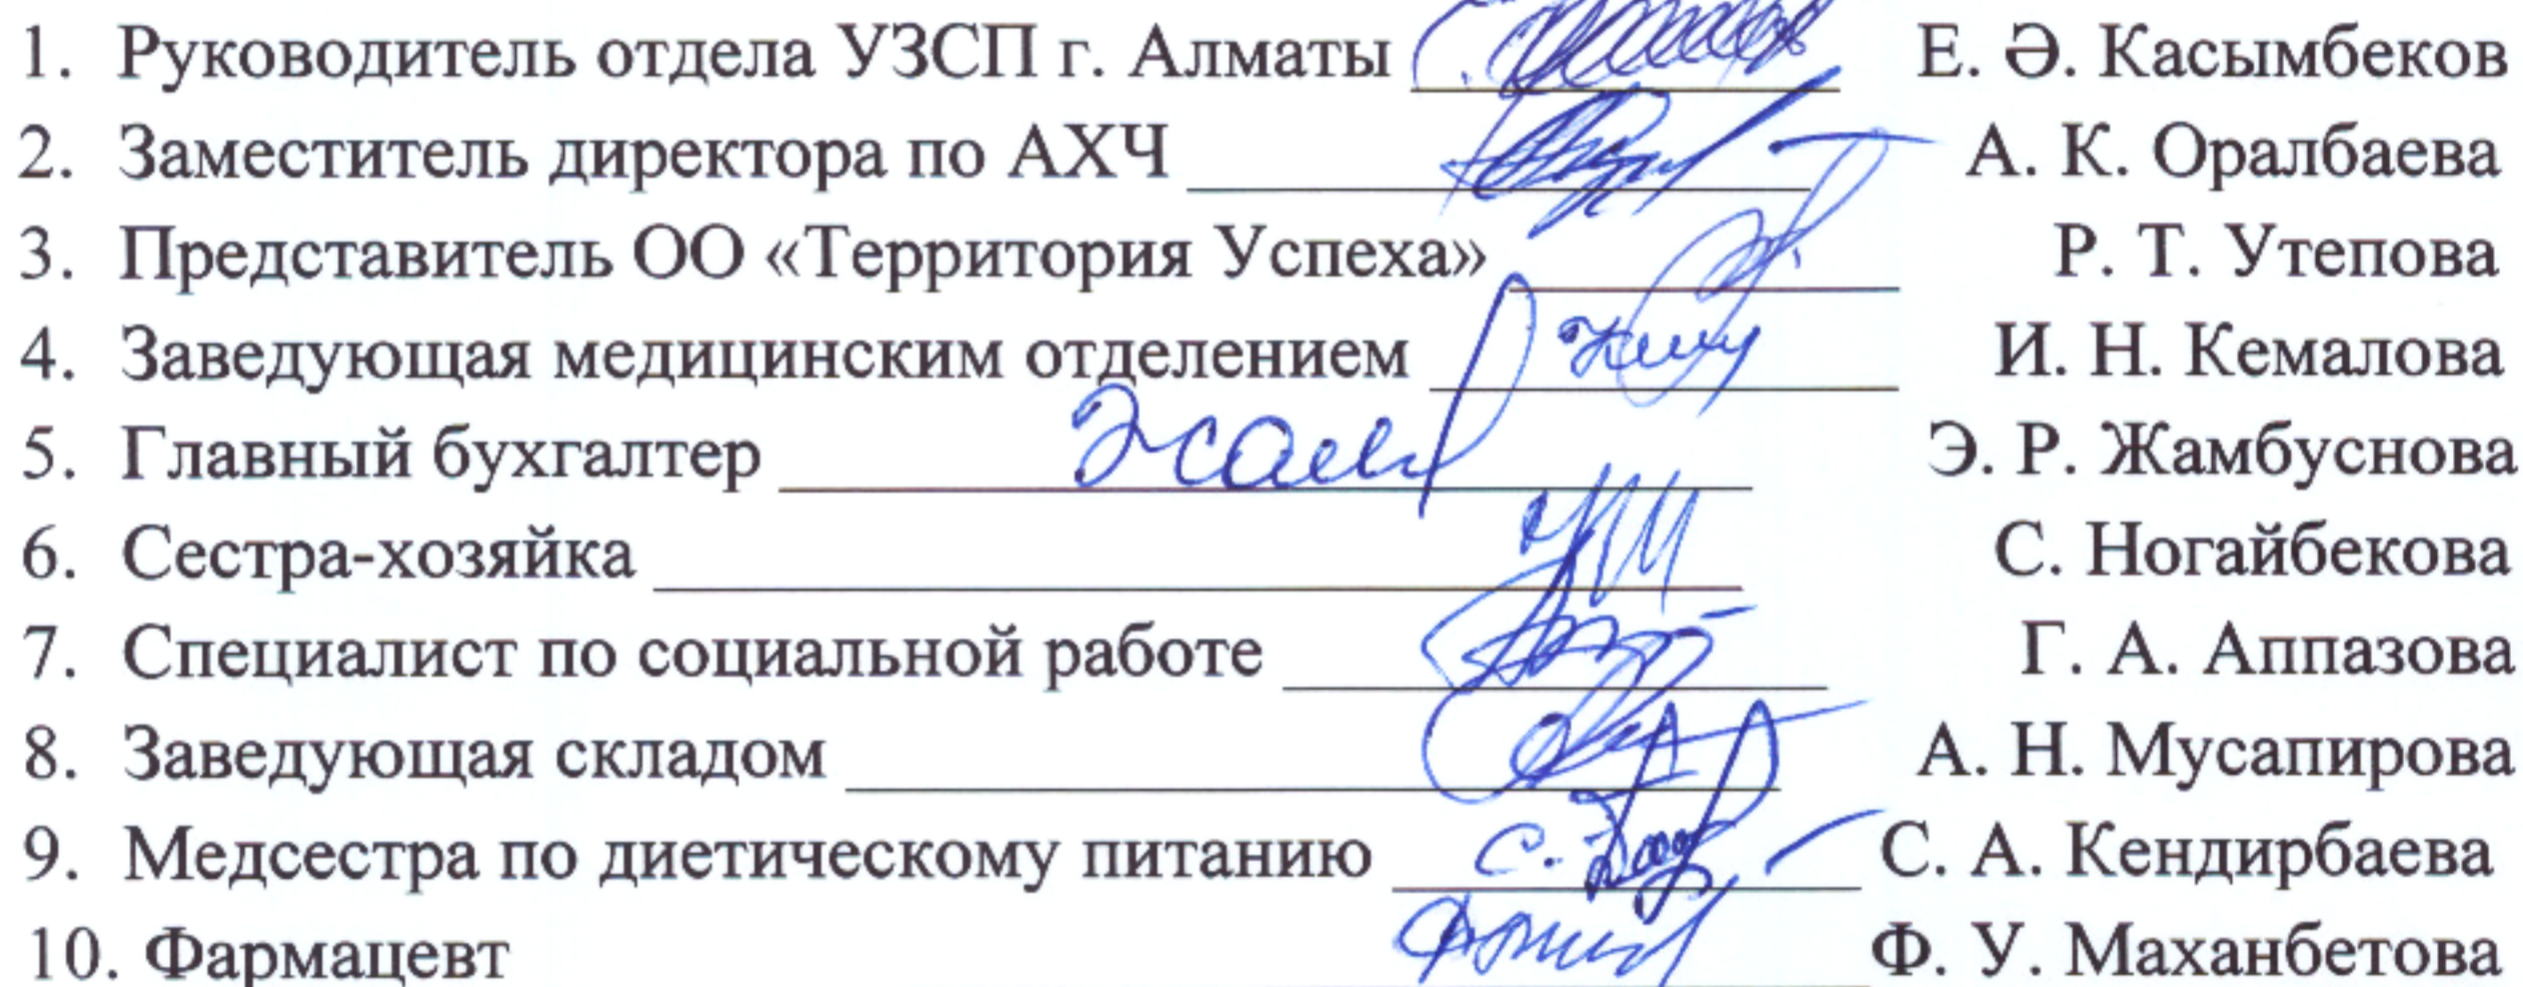 1. Руководитель отдела УЗСП г. Алматы Е. Ә. Касымбеков
2. Заместитель директора по АХЧ А. К. Оралбаева
3. Представитель ОО «Территория Успеха» Р. Т. Утепова
4. Заведующая медицинским отделением И. Н. Кемалова
5. Главный бухгалтер Э. Р. Жамбуснова
6. Сестра-хозяйка С. Ногайбекова
7. Специалист по социальной работе Г. А. Аппазова
8. Заведующая складом А. Н. Мусапирова
9. Медсестра по диетическому питанию С. А. Кендирбаева
10. Фармацевт Ф. У. Маханбетова